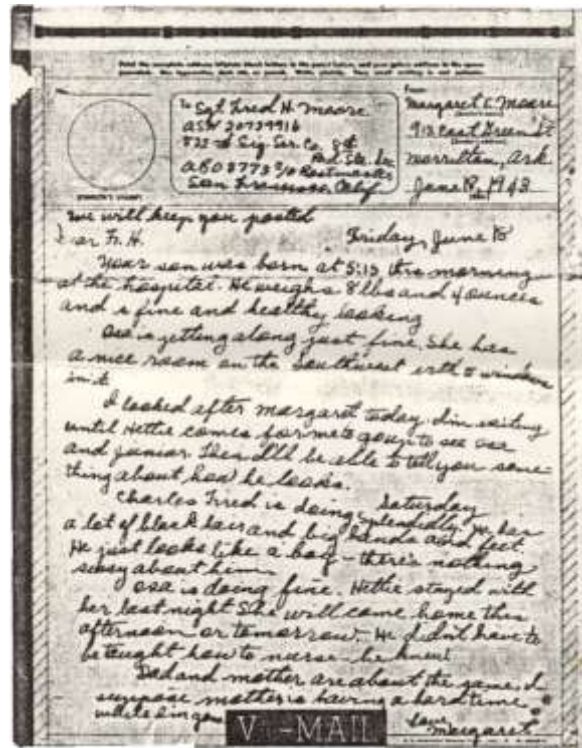 To Sgt Fred H. Moore
ASN 20739916
Sig Ser. Co.
APO 8773 c/o Postmaster
San Francisco, Calif
From
Margaret E. Moore
913 East Green St
Morrilton, Ark
June 18, 1943
We will keep you posted
Dear Fr. H. Friday, June 18
Your son was born at 5:15 this morning
at the hospital. He weighs 8 lbs and 4 ounces
and is fine and healthy looking
Osa is getting along just fine. She has
a nice room on the Southwest with windows
in it
I looked after Margaret today. I'm waiting
until Hettie comes for me to go up to see Osa
and junior. Then I'll be able to tell you some-
thing about how he looks.
Saturday
Charles Fred is doing splendidly. He has
a lot of black hair and big hands and feet.
He just looks like a boy - there's nothing
sissy about him.
Osa is doing fine. Hettie stayed with
her last night She will come home this
afternoon or tomorrow. He didn't have to
be taught how to nurse - he knew!
Dad and mother are about the same. I
suppose mother is having a hard time
while I'm gone
Love
Margaret
V - MAIL